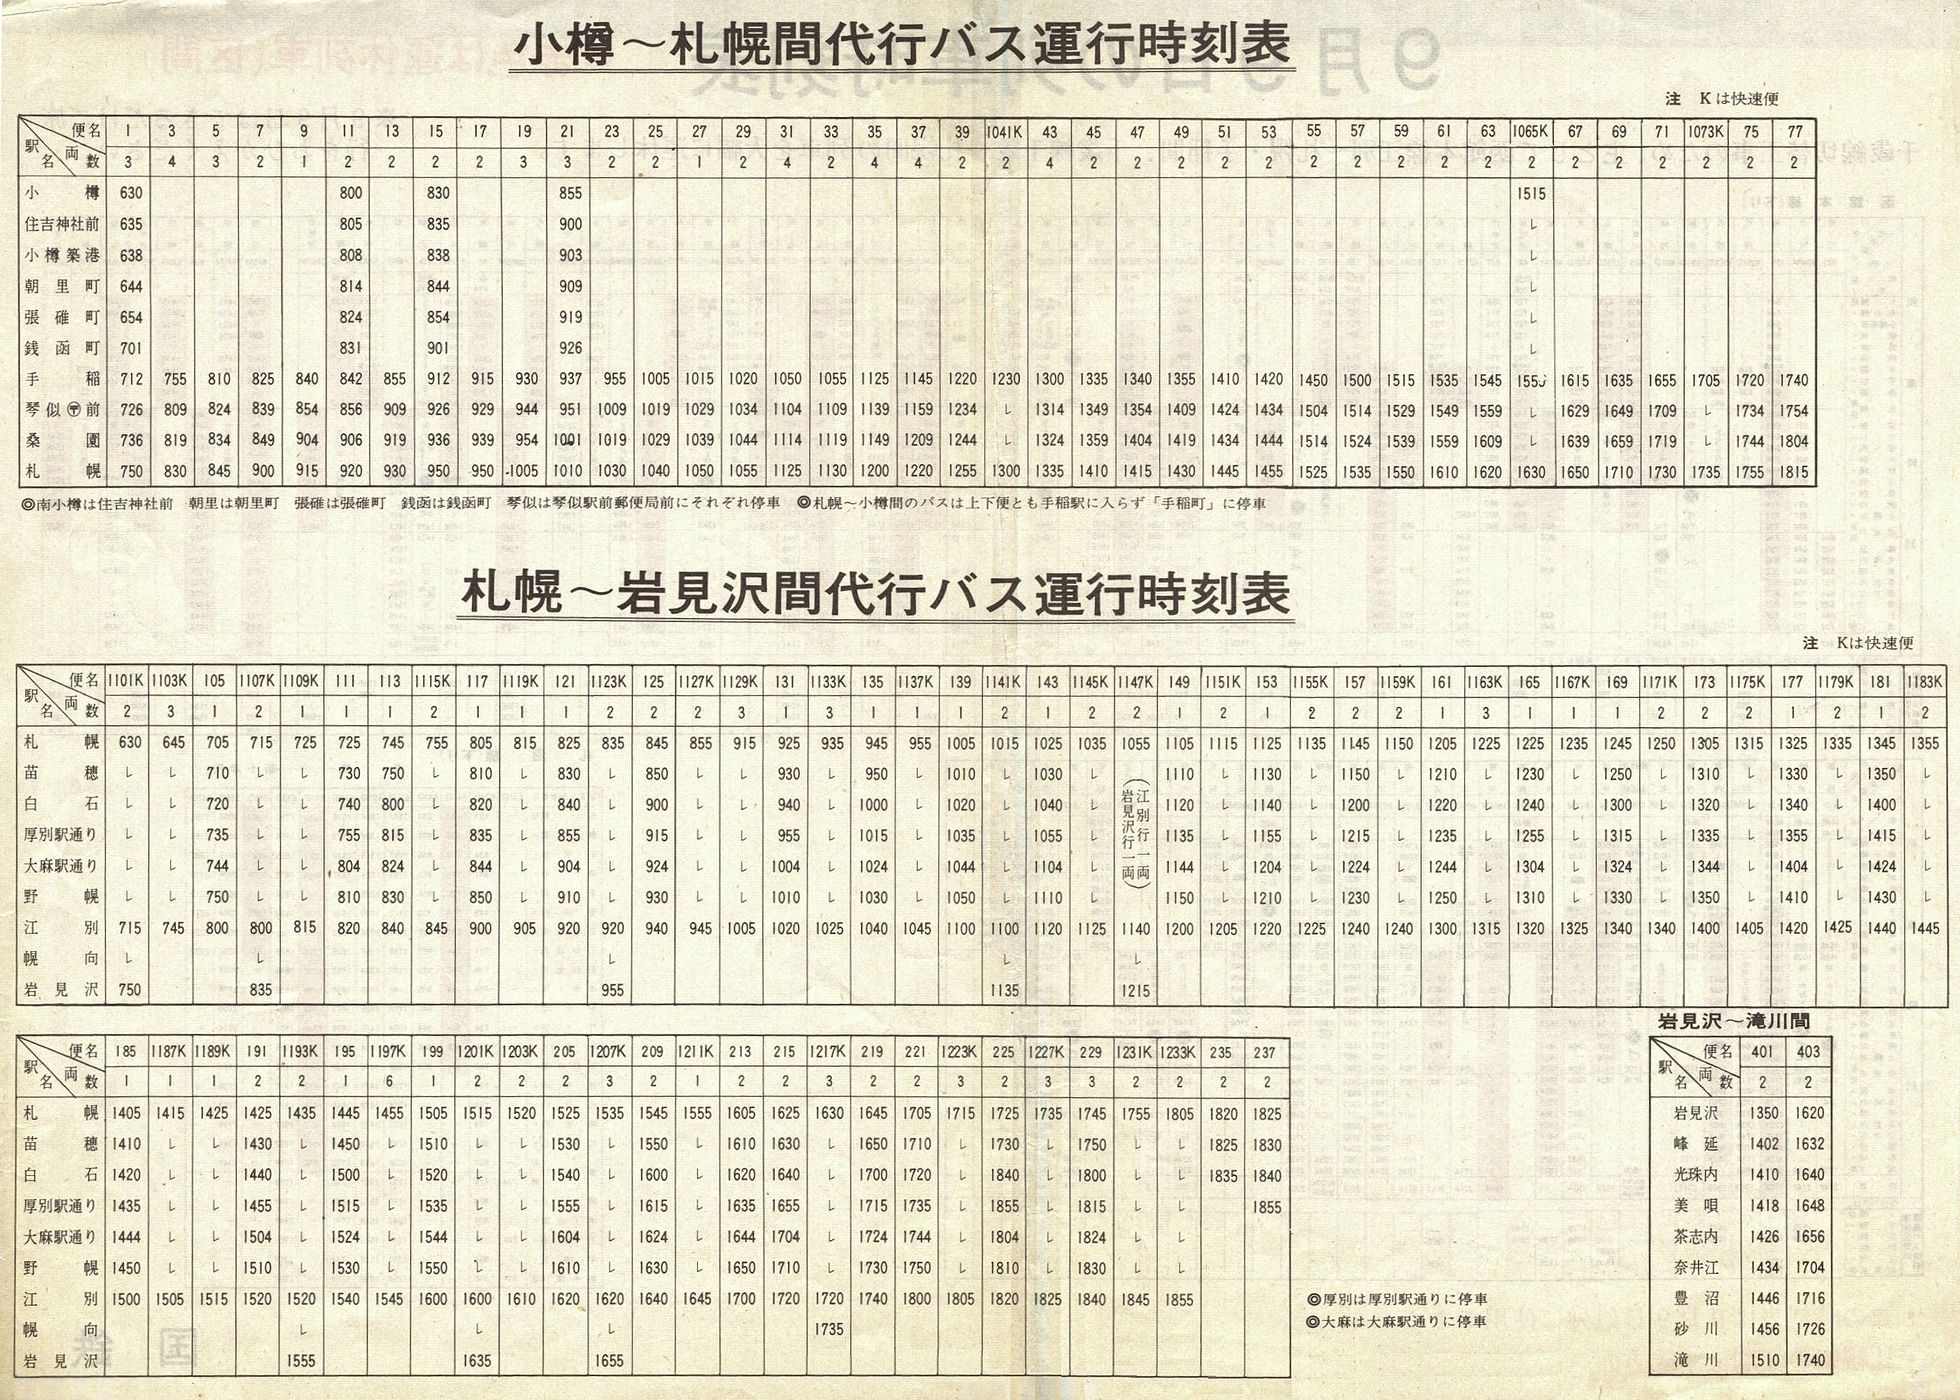 小樽～札幌間代行バス運行時刻表
注 Kは快速便
駅名 両数 便名 1 3 5 7 9 11 13 15 17 19 21 23 25 27 29 31 33 35 37 39 1041K 43 45 47 49 51 53 55 57 59 61 63 1065K 67 69 71 1073K 75 77
3 4 3 2 1 2 2 2 2 3 3 2 2 1 2 4 2 4 4 2 2 4 2 2 2 2 2 2 2 2 2 2 2 2 2 2 2 2 2
小樽 630 800 830 855 1515
住吉神社前 635 805 835 900 レ
小樽築港 638 808 838 903 レ
朝里町 644 814 844 909 レ
張碓町 654 824 854 919 レ
銭函町 701 831 901 926 レ
手稲 712 755 810 825 840 842 855 912 915 930 937 955 1005 1015 1020 1050 1055 1125 1145 1220 1230 1300 1335 1340 1355 1410 1420 1450 1500 1515 1535 1545 1555 1615 1635 1655 1705 1720 1740
琴似〶前 726 809 824 839 854 856 909 926 929 944 951 1009 1019 1029 1034 1104 1109 1139 1159 1234 レ 1314 1349 1354 1409 1424 1434 1504 1514 1529 1549 1559 レ 1629 1649 1709 レ 1734 1754
桑園 736 819 834 849 904 906 919 936 939 954 1001 1019 1029 1039 1044 1114 1119 1149 1209 1244 レ 1324 1359 1404 1419 1434 1444 1514 1524 1539 1559 1609 レ 1639 1659 1719 レ 1744 1804
札幌 750 830 845 900 915 920 930 950 950 1005 1010 1030 1040 1050 1055 1125 1130 1200 1220 1255 1300 1335 1410 1415 1430 1445 1455 1525 1535 1550 1610 1620 1630 1650 1710 1730 1735 1755 1815
◎南小樽は住吉神社前 朝里は朝里町 張碓は張碓町 銭函は銭函町 琴似は琴似駅前郵便局前にそれぞれ停車 ◎札幌～小樽間のバスは上下便とも手稲駅に入らず「手稲町」に停車
札幌～岩見沢間代行バス運行時刻表
注 Kは快速便
駅名 両数 便名 1101K 1103K 105 1107K 1109K 111 113 1115K 117 1119K 121 1123K 125 1127K 1129K 131 1133K 135 1137K 139 1141K 143 1145K 1147K 149 1151K 153 1155K 157 1159K 161 1163K 165 1167K 169 1171K 173 1175K 177 1179K 181 1183K
2 3 1 2 1 1 1 2 1 1 1 2 2 2 3 1 3 1 1 1 2 1 2 2 1 2 1 2 2 2 1 3 1 1 1 2 2 2 1 2 1 2
札幌 630 645 705 715 725 725 745 755 805 815 825 835 845 855 915 925 935 945 955 1005 1015 1025 1035 1055 1105 1115 1125 1135 1145 1150 1205 1225 1225 1235 1245 1250 1305 1315 1325 1335 1345 1355
苗穂 レ レ 710 レ レ 730 750 レ 810 レ 830 レ 850 レ レ 930 レ 950 レ 1010 レ 1030 レ (江別行一両 岩見沢行一両) 1110 レ 1130 レ 1150 レ 1210 レ 1230 レ 1250 レ 1310 レ 1330 レ 1350 レ
白石 レ レ 720 レ レ 740 800 レ 820 レ 840 レ 900 レ レ 940 レ 1000 レ 1020 レ 1040 レ 1120 レ 1140 レ 1200 レ 1220 レ 1240 レ 1300 レ 1320 レ 1340 レ 1400 レ
厚別駅通り レ レ 735 レ レ 755 815 レ 835 レ 855 レ 915 レ レ 955 レ 1015 レ 1035 レ 1055 レ 1135 レ 1155 レ 1215 レ 1235 レ 1255 レ 1315 レ 1335 レ 1355 レ 1415 レ
大麻駅通り レ レ 744 レ レ 804 824 レ 844 レ 904 レ 924 レ レ 1004 レ 1024 レ 1044 レ 1104 レ 1144 レ 1204 レ 1224 レ 1244 レ 1304 レ 1324 レ 1344 レ 1404 レ 1424 レ
野幌 レ レ 750 レ レ 810 830 レ 850 レ 910 レ 930 レ レ 1010 レ 1030 レ 1050 レ 1110 レ 1150 レ 1210 レ 1230 レ 1250 レ 1310 レ 1330 レ 1350 レ 1410 レ 1430 レ
江別 715 745 800 800 815 820 840 845 900 905 920 920 940 945 1005 1020 1025 1040 1045 1100 1100 1120 1125 1140 1200 1205 1220 1225 1240 1240 1300 1315 1320 1325 1340 1340 1400 1405 1420 1425 1440 1445
幌向 レ レ レ レ レ
岩見沢 750 835 955 1135 1215
駅名 両数 便名 185 1187K 1189K 191 1193K 195 1197K 199 1201K 1203K 205 1207K 209 1211K 213 215 1217K 219 221 1223K 225 1227K 229 1231K 1233K 235 237
1 1 1 2 2 1 6 1 2 2 2 3 2 1 2 2 3 2 2 3 2 3 3 2 2 2 2
札幌 1405 1415 1425 1425 1435 1445 1455 1505 1515 1520 1525 1535 1545 1555 1605 1625 1630 1645 1705 1715 1725 1735 1745 1755 1805 1820 1825
苗穂 1410 レ レ 1430 レ 1450 レ 1510 レ レ 1530 レ 1550 レ 1610 1630 レ 1650 1710 レ 1730 レ 1750 レ レ 1825 1830
白石 1420 レ レ 1440 レ 1500 レ 1520 レ レ 1540 レ 1600 レ 1620 1640 レ 1700 1720 レ 1840 レ 1800 レ レ 1835 1840
厚別駅通り 1435 レ レ 1455 レ 1515 レ 1535 レ レ 1555 レ 1615 レ 1635 1655 レ 1715 1735 レ 1855 レ 1815 レ レ 1855
大麻駅通り 1444 レ レ 1504 レ 1524 レ 1544 レ レ 1604 レ 1624 レ 1644 1704 レ 1724 1744 レ 1804 レ 1824 レ レ
野幌 1450 レ レ 1510 レ 1530 レ 1550 レ レ 1610 レ 1630 レ 1650 1710 レ 1730 1750 レ 1810 レ 1830 レ レ
江別 1500 1505 1515 1520 1520 1540 1545 1600 1600 1610 1620 1620 1640 1645 1700 1720 1720 1740 1800 1805 1820 1825 1840 1845 1855
幌向 レ レ レ 1735
岩見沢 1555 1635 1655
◎厚別は厚別駅通りに停車
◎大麻は大麻駅通りに停車
岩見沢～滝川間
駅名 両数 便名 401 403
2 2
岩見沢 1350 1620
峰延 1402 1632
光珠内 1410 1640
美唄 1418 1648
茶志内 1426 1656
奈井江 1434 1704
豊沼 1446 1716
砂川 1456 1726
滝川 1510 1740